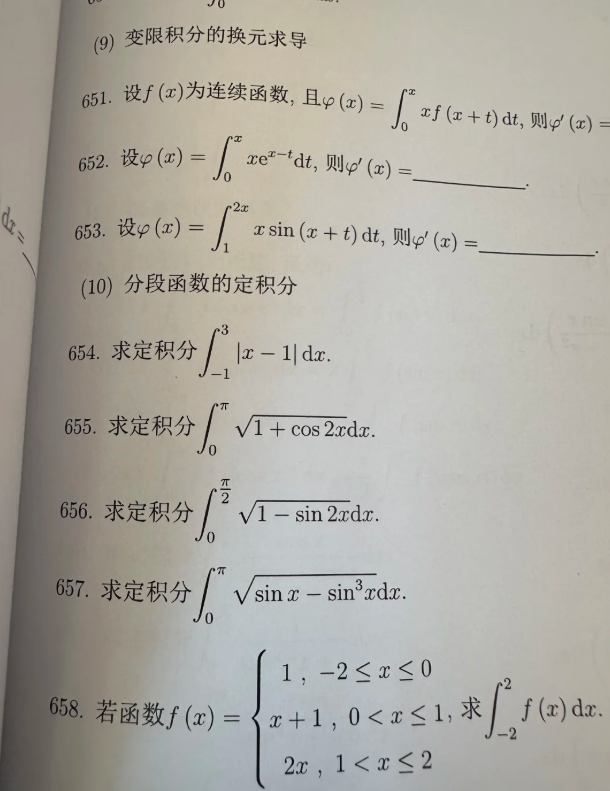 (9) 变限积分的换元求导
651. 设f (x)为连续函数, 且φ (x) = ∫₀ˣ xf (x + t) dt, 则φ′ (x) =
652. 设φ (x) = ∫₀ˣ xeˣ⁻ᵗdt, 则φ′ (x) =________.
653. 设φ (x) = ∫₁²ˣ x sin (x + t) dt, 则φ′ (x) =________.
dx =
(10) 分段函数的定积分
654. 求定积分∫₋₁³ |x − 1| dx.
655. 求定积分∫₀^π √(1 + cos 2x)dx.
656. 求定积分∫₀^(π/2) √(1 − sin 2x)dx.
657. 求定积分∫₀^π √(sin x − sin³x)dx.
658. 若函数f (x) = { 1 , −2 ≤ x ≤ 0
x + 1 , 0 < x ≤ 1, 求∫₋₂² f (x) dx.
2x , 1 < x ≤ 2